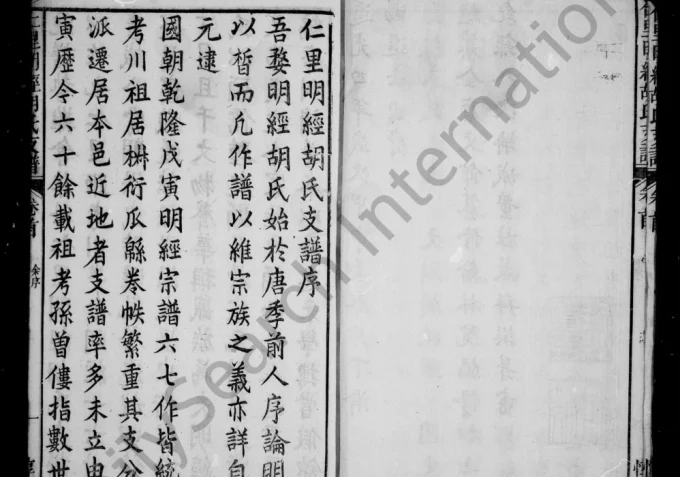 仁里明經胡氏支譜序
吾婺明經胡氏始於唐季前人序論明
以晳而凡作譜以維宗族之義亦詳自
元逮
國朝乾隆戊寅明經宗譜六七作皆統
考川祖居椒衍瓜緜卷帙繁重其支分
派遷居本邑近地者支譜率多未立由
寅歷今六十餘載祖考孫曾僂指數世
仁里明經胡氏支譜
卷首
餘序
一
仁里明經胡氏支譜
卷首
FamilySearch International